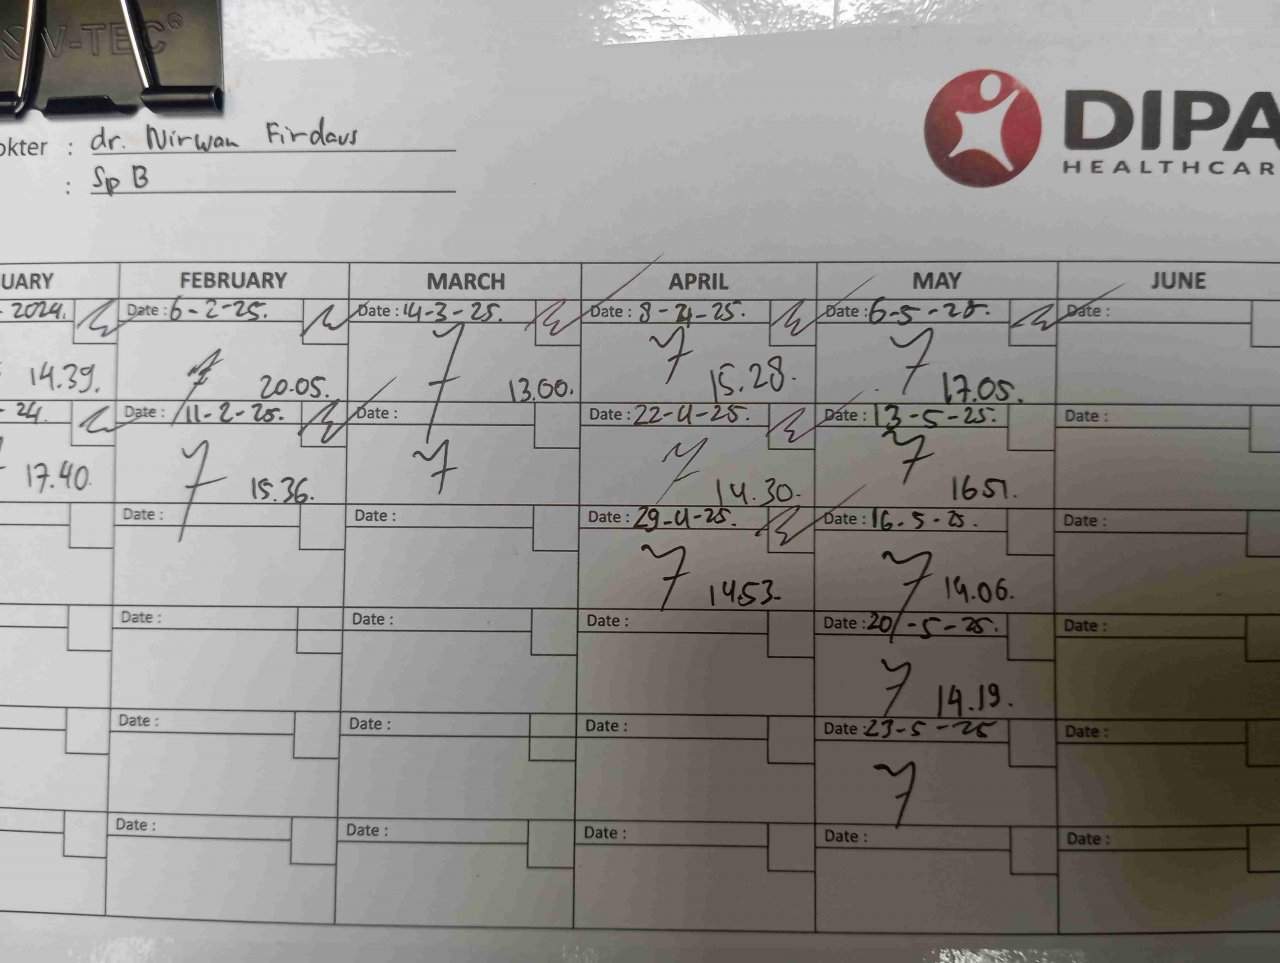 V-TEC®
okter : dr. Nirwan Firdaus
: Sp B
DIPA
HEALTHCAR
UARY FEBRUARY MARCH APRIL MAY JUNE
2024. Date : 6-2-25. Date : 14-3-25. Date : 8-4-25. Date : 6-5-25. Date :
14.39. 20.05. 13.00. 15.28. 17.05.
24. Date : 11-2-25. Date : Date : 22-4-25. Date : 13-5-25. Date :
17.40. 15.36. 14.30. 1651.
Date : Date : Date : 29-4-25. Date : 16-5-25. Date :
1453. 14.06.
Date : Date : Date : Date : 20-5-25. Date :
14.19.
Date : Date : Date : Date : 23-5-25 Date :
Date : Date : Date : Date : Date :